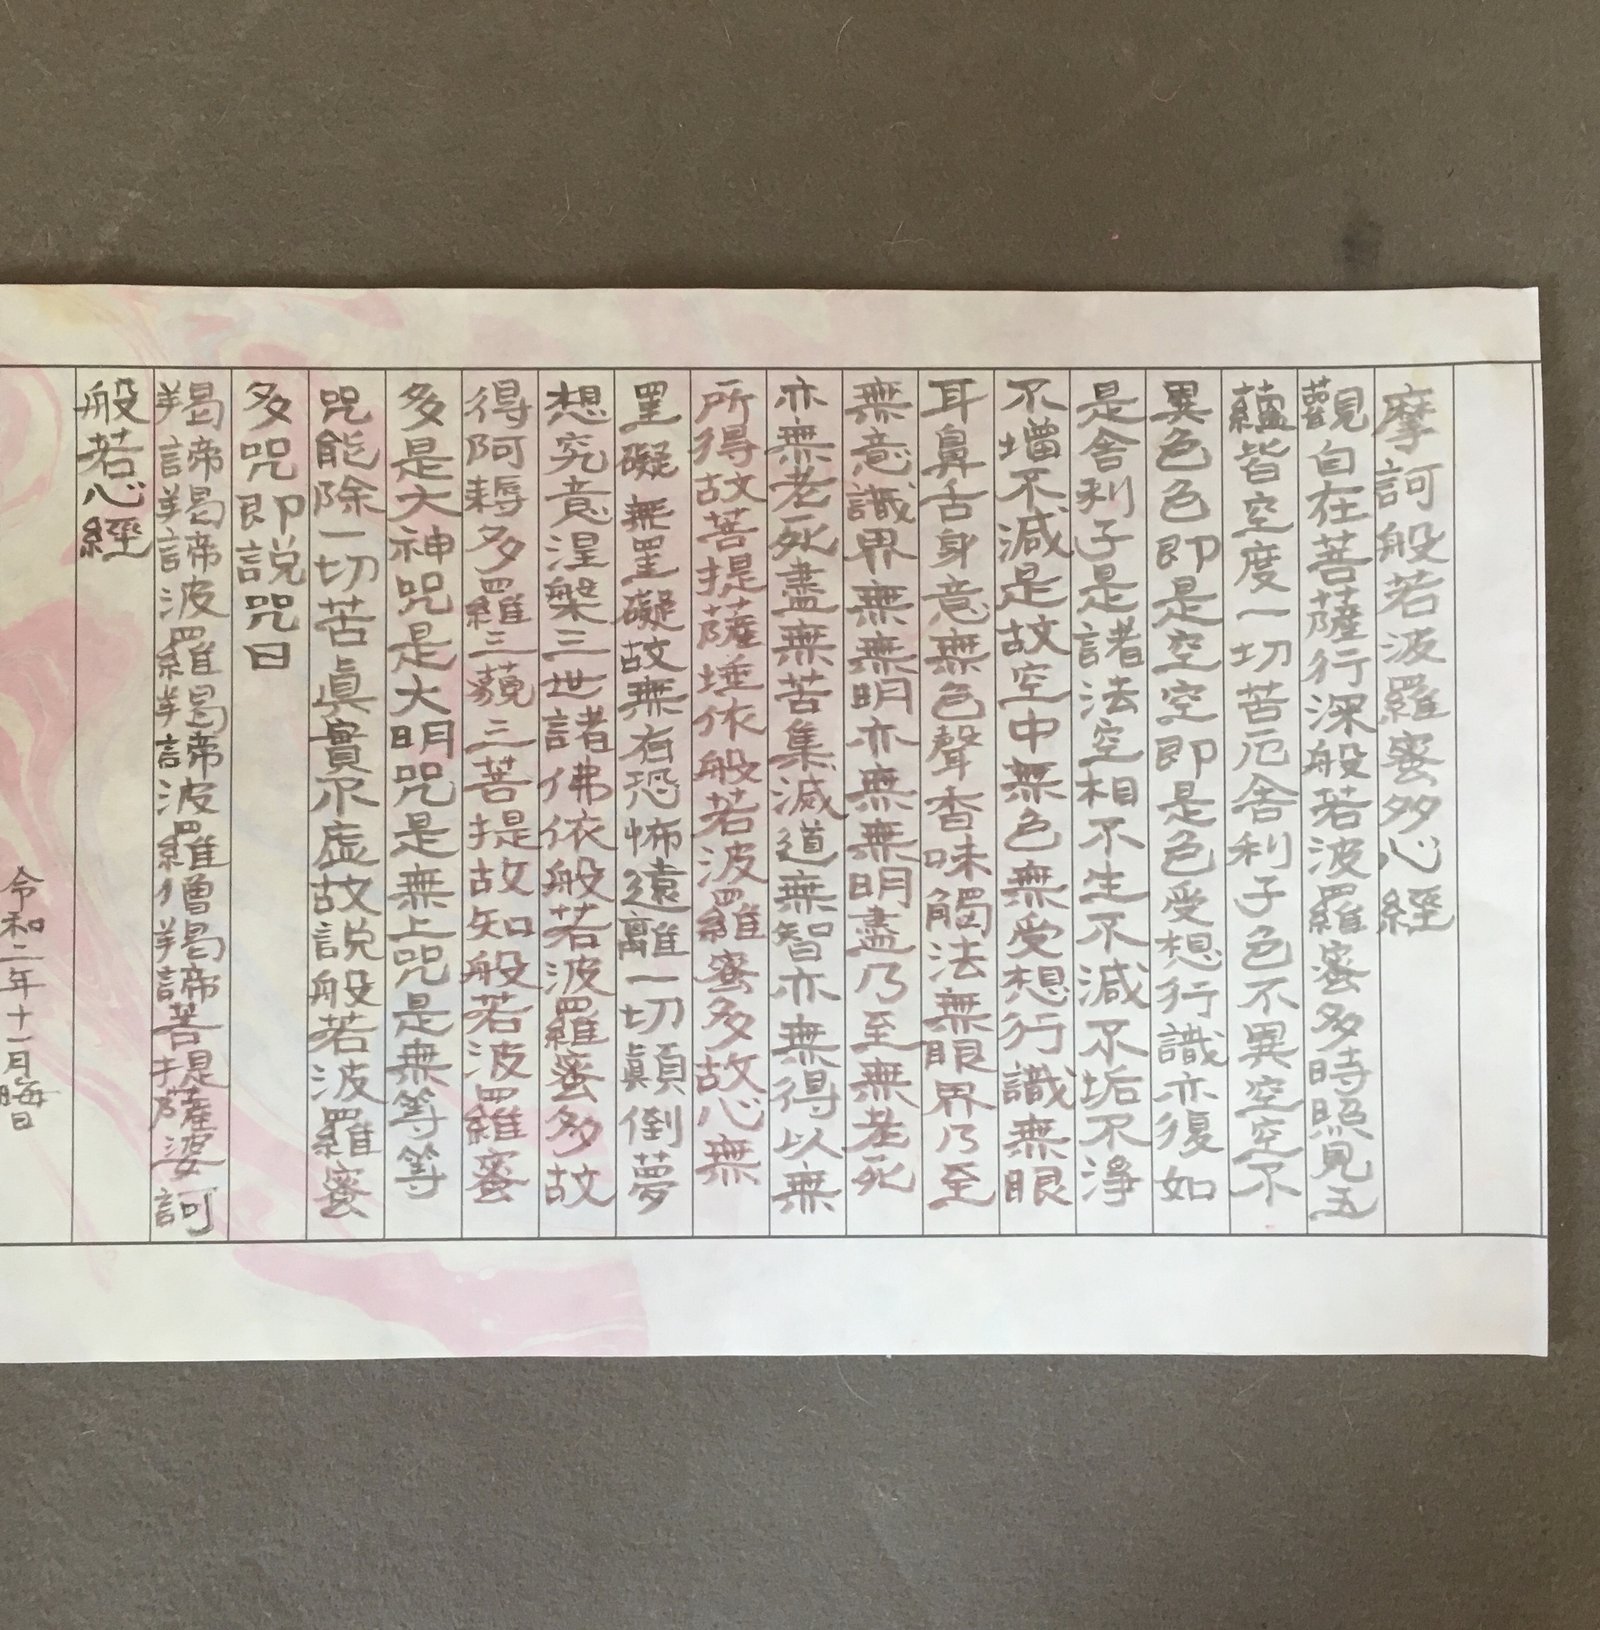 摩訶般若波羅蜜多心經
觀自在菩薩行深般若波羅蜜多時照見五
蘊皆空度一切苦厄舎利子色不異空空不
異色色即是空空即是色受想行識亦復如
是舎利子是諸法空相不生不滅不垢不淨
不増不減是故空中無色無受想行識無眼
耳鼻舌身意無色聲香味觸法無眼界乃至
無意識界無無明亦無無明盡乃至無老死
亦無老死盡無苦集滅道無智亦無得以無
所得故菩提薩埵依般若波羅蜜多故心無
罣礙無罣礙故無有恐怖遠離一切顛倒夢
想究竟涅槃三世諸佛依般若波羅蜜多故
得阿耨多羅三藐三菩提故知般若波羅蜜
多是大神咒是大明咒是無上咒是無等等
咒能除一切苦眞實不虚故説般若波羅蜜
多咒即説咒曰
羯諦羯諦波羅羯諦波羅僧羯諦菩提薩婆訶
般若心經
令和二年十一月晦日